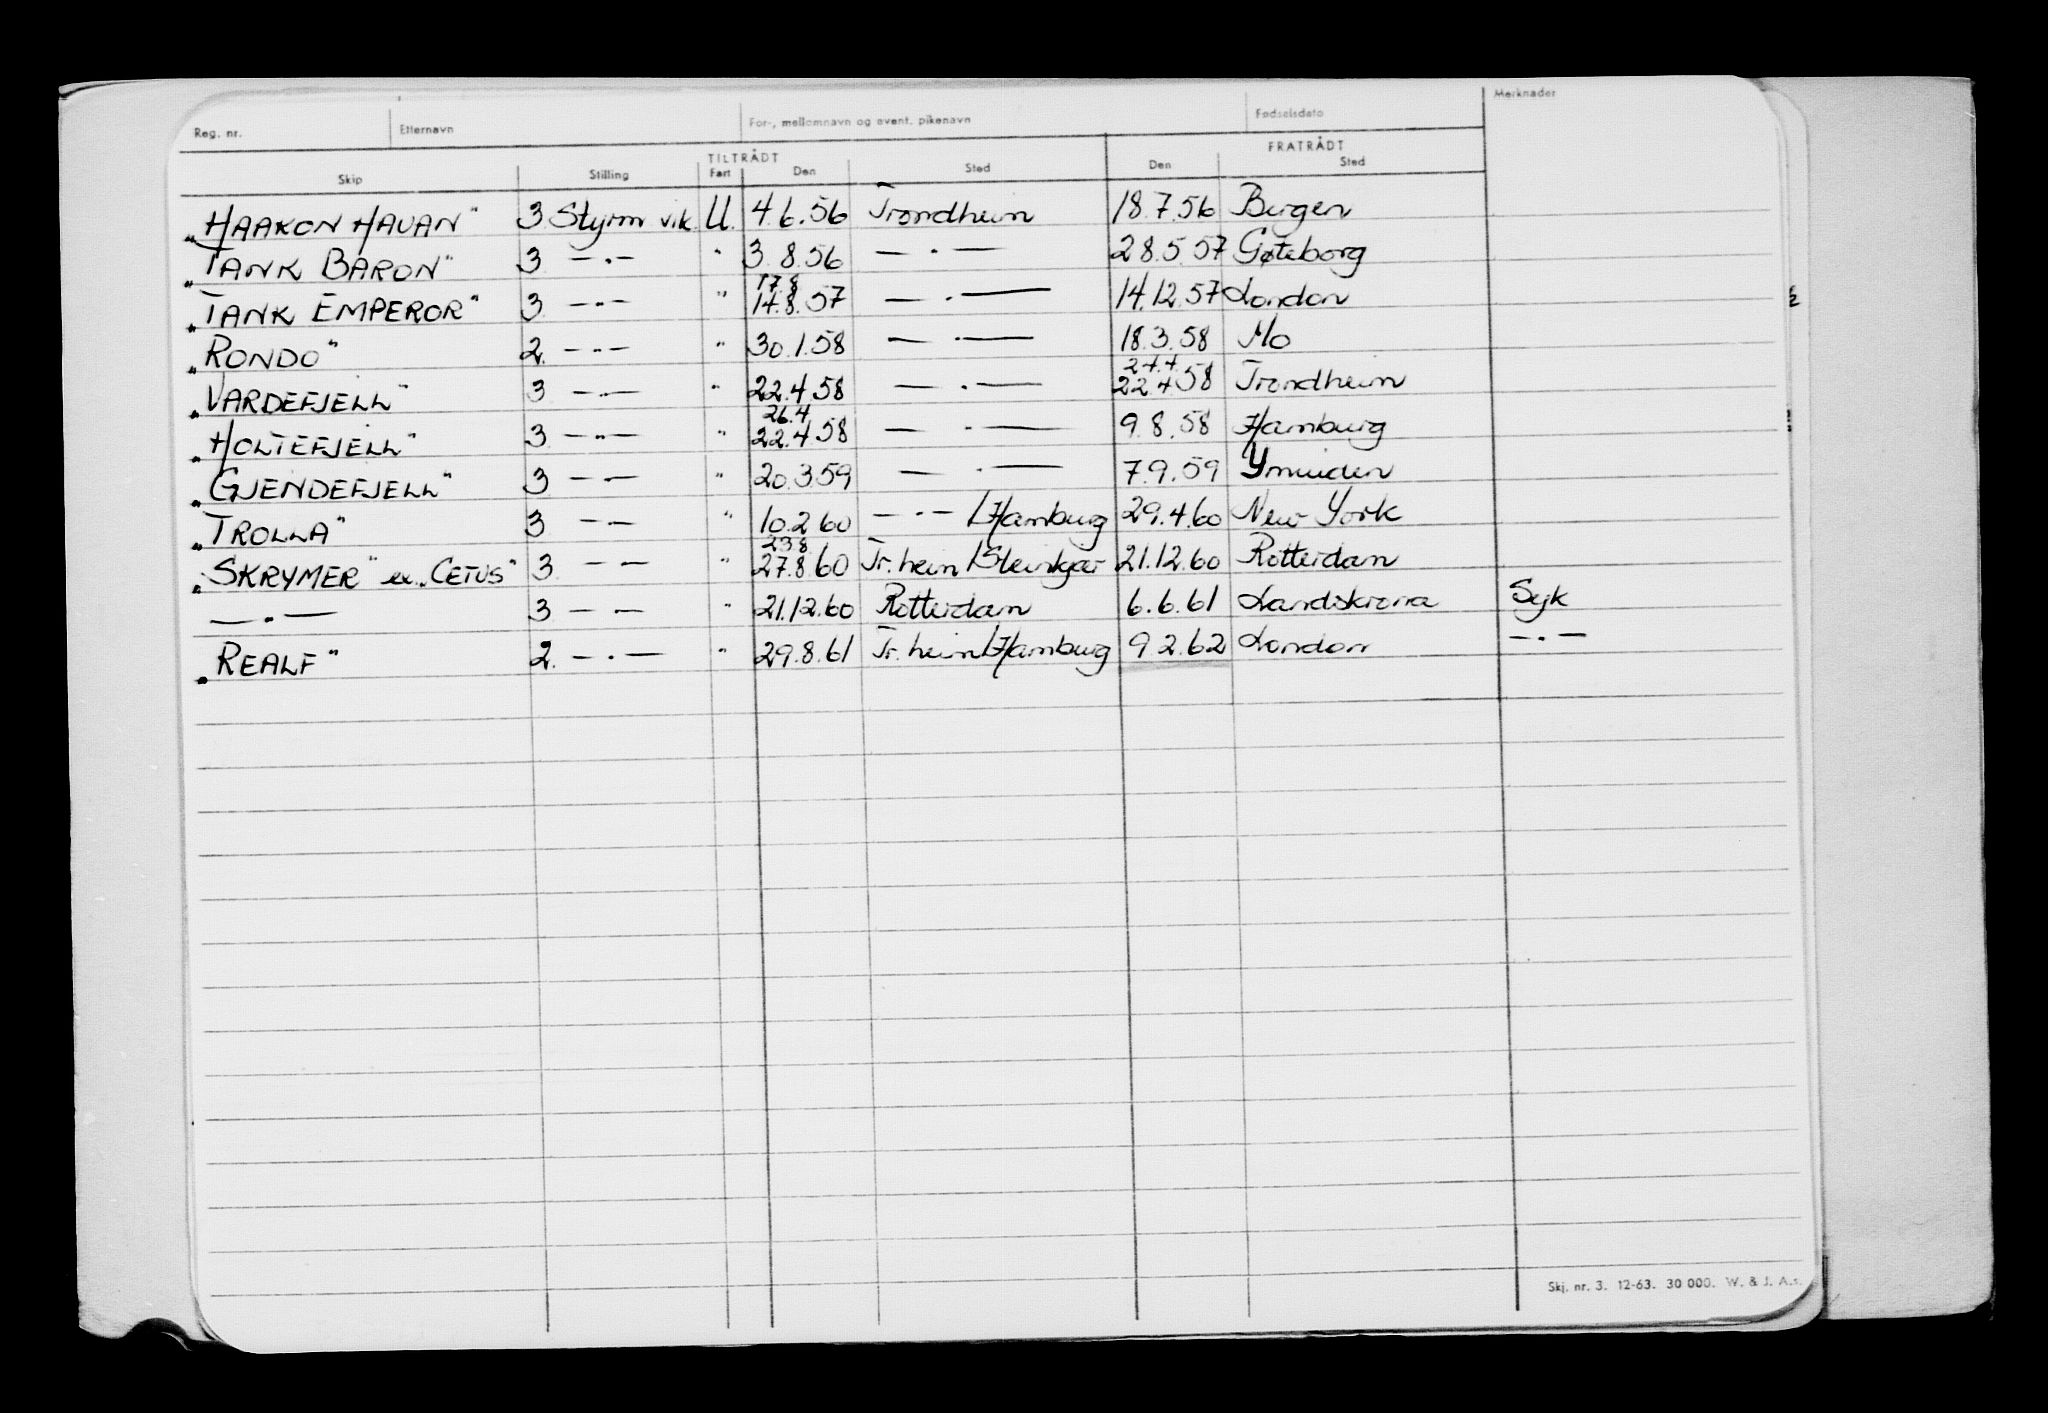 Reg. nr. Etternavn For-, mellomnavn og event. pikenavn Fødselsdato Merknader
TILTRÅDT FRATRÅDT
Skip Stilling Fart Den Sted Den Sted
„HAAKON HAUAN" 3 Styrm vik. U. 4.6.56 Trondheim 18.7.56 Bergen
„TANK BARON" 3 —·— " 3.8.56 —·— 28.5.57 Gøteborg
17.8
„TANK EMPEROR" 3 —·— " 14.8.57 —·— 14.12.57 London
„RONDO" 2. —·— " 30.1.58 —·— 18.3.58 Mo
24.4.
„VARDEFJELL" 3 —·— " 22.4.58 —·— 22.4.58 Trondheim
26.4
„HOLTEFJELL" 3 —·— " 22.4.58 —·— 9.8.58 Hamburg
„GJENDEFJELL" 3 —·— " 20.3.59 —·— 7.9.59 Ymuiden
„TROLLA" 3 —·— " 10.2.60 —·— /Hamburg 29.4.60 New York
23.8
„SKRYMER" ex. „CETUS" 3 —·— " 27.8.60 Tr.heim/Steinkjær 21.12.60 Rotterdam
—·— 3 —·— " 21.12.60 Rotterdam 6.6.61 Landskrona Syk
„REALF" 2. —·— " 29.8.61 Tr.heim/Hamburg 9.2.62 London —·—
Skj. nr. 3. 12-63. 30 000. W. & J. A.s.